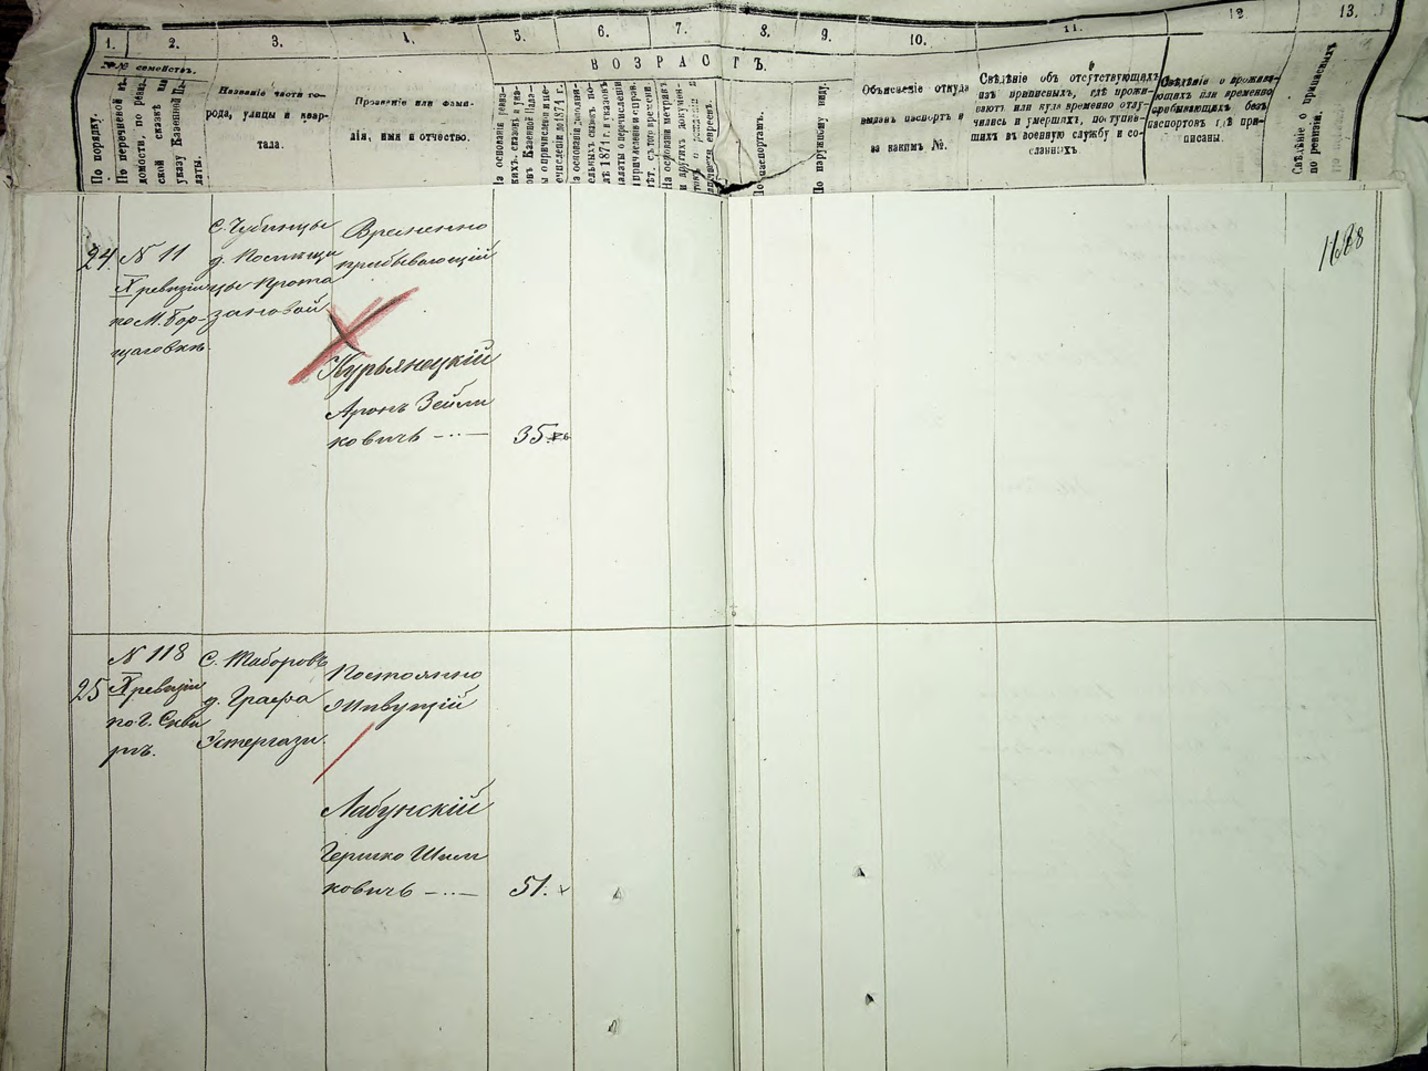 1. 2. 3. 4. 5. 6. 7. 8. 9. 10. 11. 12. 13.
№№ семействъ.
ВОЗРАСТЪ.
По порядку.
По перечневой вѣ-
домости, по ревиз-
ской сказкѣ или
указу Казенной Па-
латы.
Названіе части го-
рода, улицы и квар-
тала.
Прозваніе или фами-
лія, имя и отчество.
На основаніи ревиз-
скихъ сказокъ и ука-
зовъ Казенной Пала-
ты о причисленіи и пе-
речисленіи до 1874 г.
На основаніи дополни-
тельныхъ сказокъ по-
слѣ 1874 г. и указовъ
палаты о перечисленіи
и причисленіи въ справ.
лѣт. съ того времени.
На основаніи метрикъ
и другихъ докумен-
товъ о рожденіи и
евреевъ.
По паспортамъ.
По наружному виду.
Объясненіе откуда
выданъ паспортъ и
за какимъ №.
Свѣдѣніе объ отсутствующихъ
изъ приписныхъ, гдѣ прожи-
ваютъ или куда временно отлу-
чились и умершихъ, поступив-
шихъ въ военную службу и со-
сланныхъ
Свѣдѣніе о прожива-
ющихъ или временно
пребывающихъ безъ
паспортовъ гдѣ при-
писаны.
Свѣдѣніе о приписныхъ
по ревизіи.
1188
24. N 11
X ревизіи
по М. Бор-
щаговкѣ.
С. Чубинцы
д.
зановой
Временно
прибывающій
Курьянецкій
Аронъ Зейли
ковичъ — 35.
25 N 118
X ревизіи
по г. Скви
рѣ.
С. Таборовъ
д. Графа
Эстергази.
Постоянно
живущій
Лабунскій
Гершко Шим
ковичъ — 51.